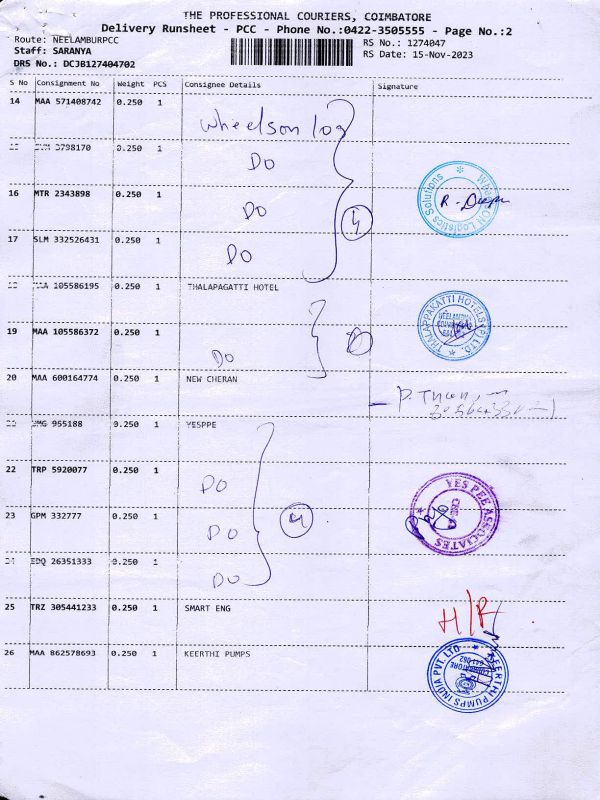 THE PROFESSIONAL COURIERS, COIMBATORE
Delivery Runsheet - PCC - Phone No.:0422-3505555 - Page No.:2
Route: NEELAMBURPCC
RS No.: 1274047
Staff: SARANYA
RS Date: 15-Nov-2023
DRS No.: DCJB127404702
S No Consignment No Weight PCS Consignee Details Signature
14 MAA 571408742 0.250 1
Wheelson log
3798170 0.250 1 DO
16 MTR 2343898 0.250 1 DO
WheelSON Logistics Solutions
R. 
4
17 SLM 332526431 0.250 1 DO
105586195 0.250 1 THALAPAGATTI HOTEL
THALAPPAKATTI HOTELS (P) LTD.
19 MAA 105586372 0.250 1 DO
20 MAA 600164774 0.250 1 NEW CHERAN
955188 0.250 1 YESPPE
22 TRP 5920077 0.250 1 DO
YES PEE ASSOCIATES
23 GPM 332777 0.250 1 DO
4
EDQ 26351333 0.250 1 DO
25 TRZ 305441233 0.250 1 SMART ENG
H/R
26 MAA 862578693 0.250 1 KEERTHI PUMPS
KEERTHI PUMPS INDIA PVT. LTD
COIMBATORE
641 062